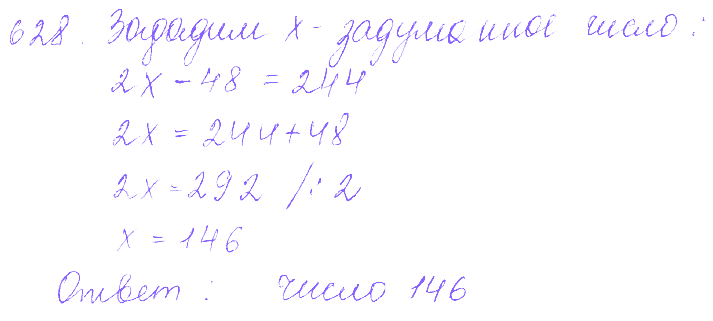 628. Зададим x - задуманное число:
2x - 48 = 244
2x = 244 + 48
2x = 292 /: 2
x = 146
Ответ: число 146